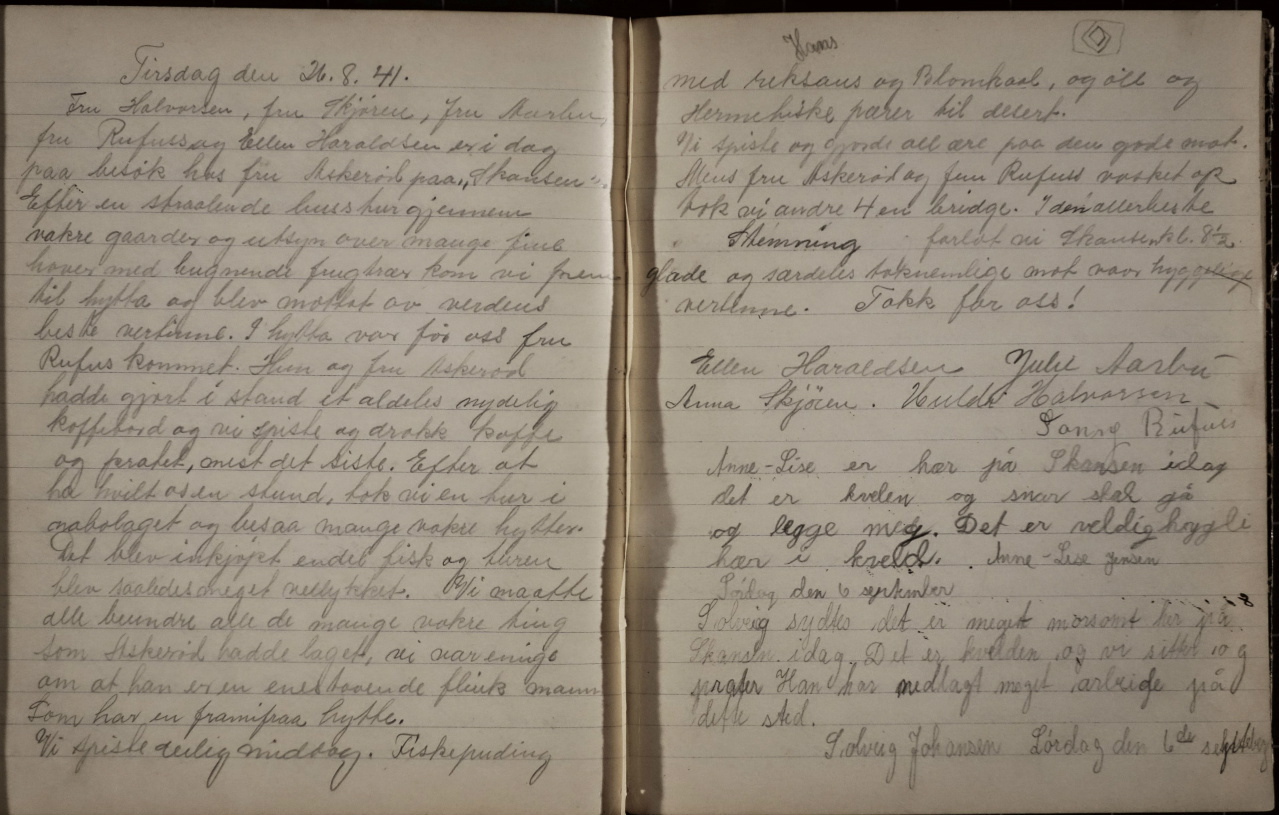 Tirsdag den 26.8.41.
Fru Halvorsen, fru Skjøren, fru Aarbu,
fru Rufuss og Ellen Haraldsen er i dag
paa besøk hos fru Askerød paa „Skansen".
Efter en straalende busstur gjennem
vakre gaarder og utsyn over mange fine
haver med bugnende frugttrær kom vi frem
til hytta og blev mottat av verdens
beste vertinne. I hytta var før oss fru
Rufus kommet. Hun og fru Askerød
hadde gjort i stand et aldeles nydelig
koffebord og vi spiste og drakk koffe
og pratet, mest det siste. Efter at
ha hvilt os en stund, tok vi en tur i
nabolaget og besaa mange vakre hytter.
Det blev inkjøpt endel fisk og turen
blev saaledes meget vellykket. Vi maatte
alle beundre alle de mange vakre ting
som Askerød hadde laget, vi var enige
om at han er en enestaaende flink mann
som har en framifraa hytte.
Vi spiste deilig middag. Fiskepuding
Hans
med reksaus og Blomkaal, og øll og
Hermetiske pærer til desert.
Vi spiste og gjorde all ære paa den gode mat.
Mens fru Askerød og fru Rufuss vasket op
tok vi andre 4 en bridge. I den allerbeste
Stemning forlot vi Skansen kl. 8½.
glade og særdeles taknemlige mot vaar hyggelige
vertinne. Takk for oss!
Ellen Haraldsen Julie Aarbu
Anna Skjören. Hulda Halvorsen
Rufuss
Anne-Lise er hær på Skansen idag
det er kvelen og snar skal gå
og legge meg. Det er veldig hyggli
hær i kveld. Anne-Lise Jensen
Lördag den 6 september
Solveig sydtes det er megett morsomt her på
Skansen idag. Det er kvelden og vi sitter og
prater Han har nedlagt meget arbeide på
dette sted.
Solveig Johansen Lørdag den 6de september